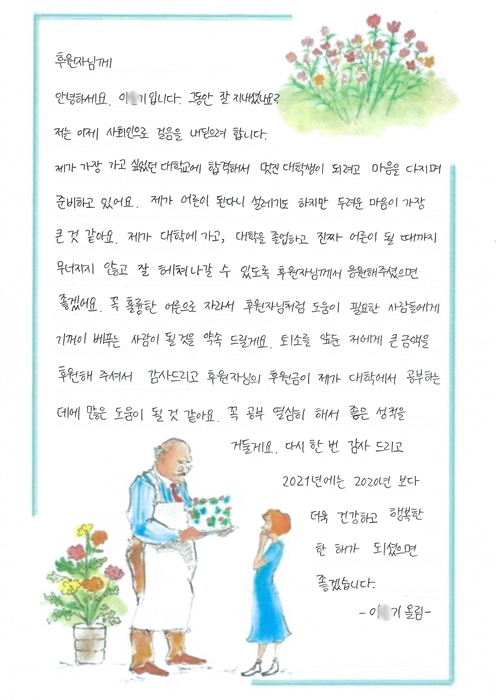 후원자님께
안녕하세요. 이 기입니다. 그동안 잘 지내셨나요?
저는 이제 사회인으로 걸음을 내딛으려 합니다.
제가 가장 가고 싶었던 대학교에 합격해서 멋진 대학생이 되려고 마음을 다지며
준비하고 있어요. 제가 어른이 된다니 설레기도 하지만 두려운 마음이 가장
큰 것 같아요. 제가 대학에 가고, 대학을 졸업하고 진짜 어른이 될 때까지
무너지지 않고 잘 헤쳐나갈 수 있도록 후원자님께서 응원해주셨으면
좋겠어요. 꼭 훌륭한 어른으로 자라서 후원자님처럼 도움이 필요한 사람들에게
기꺼이 베푸는 사람이 될 것을 약속 드릴게요. 퇴소를 앞둔 저에게 큰 금액을
후원해 주셔서 감사드리고 후원자님의 후원금이 제가 대학에서 공부하는
데에 많은 도움이 될 것 같아요. 꼭 공부 열심히 해서 좋은 성적을
거둘게요. 다시 한 번 감사 드리고
2021년에는 2020년 보다
더욱 건강하고 행복한
한 해가 되셨으면
좋겠습니다.
-이 기 올림-